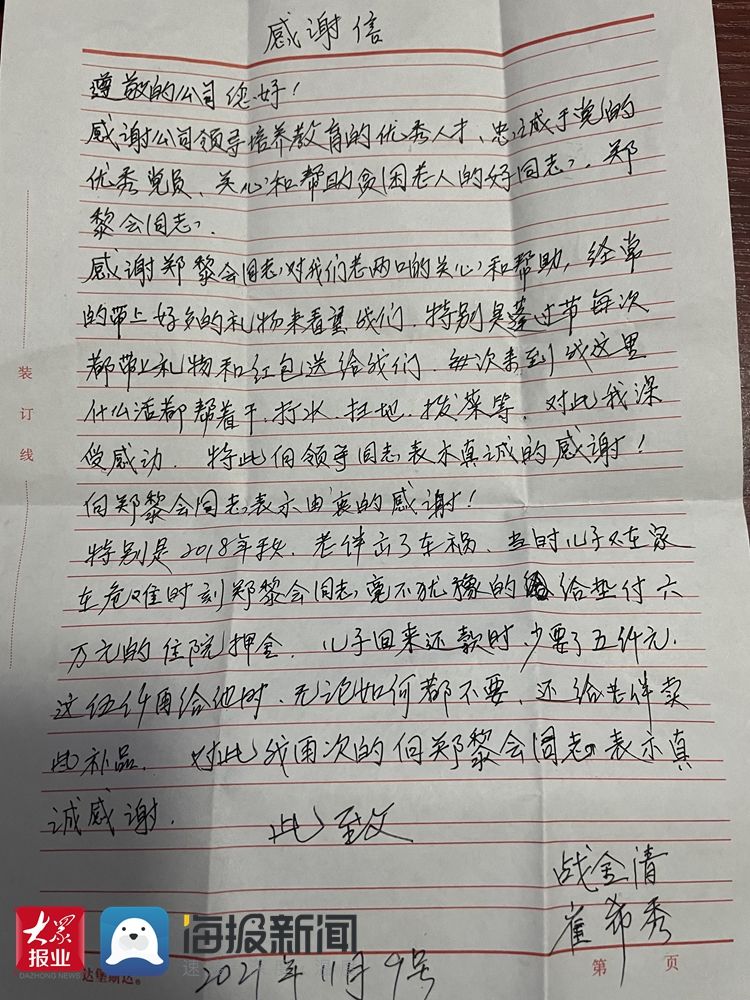 感谢信
遵敬的公司您好！
感谢公司领导培养教育的优秀人才、忠诚于党的
优秀党员、关心和帮助贫困老人的好同志、郑
黎会同志，
感谢郑黎会同志对我们老两口的关心和帮助，经常
的带上好多的礼物来看望我们．特别是逢过节每次
都带上礼物和红包送给我们．每次来到我这里
什么活都帮着干，打水、扫地、拨菜等．对此我深
受感动．特此向领导同志表示真诚的感谢！
向郑黎会同志表示由衷的感谢！
特别是2018年秋、老伴出了车祸、当时儿子不在家
在危难时刻郑黎会同志毫不犹豫的给垫付六
万元的住院押金．儿子回来还款时，少要了五仟元．
这伍仟再给他时、无论如何都不要、还给老伴卖
些补品．对此我再次的向郑黎会同志表示真
诚感谢．
此致
战金清
崔希秀
2021年11月9号
装订线
第 页
大众报业
DAZHONG NEWS
海报新闻